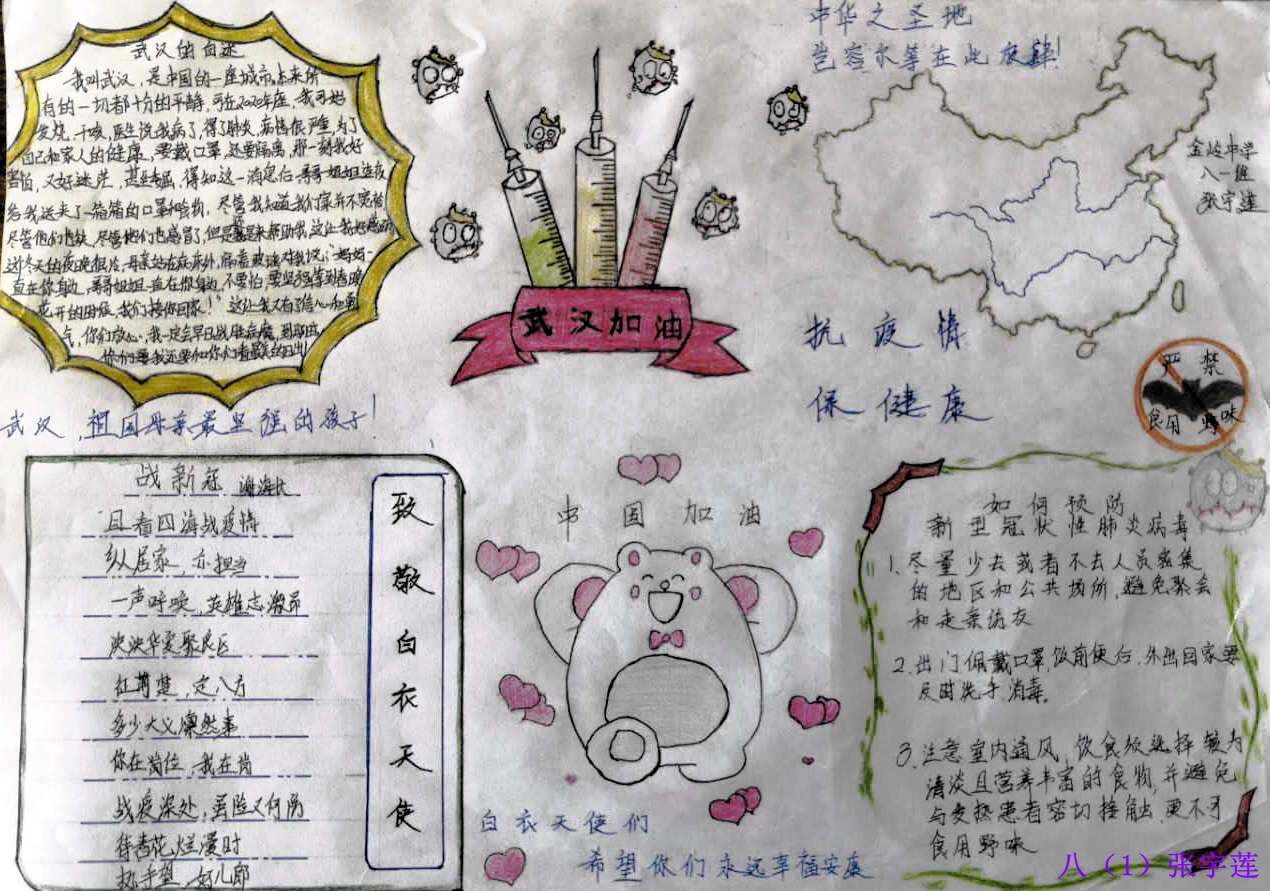 武汉的自述
我叫武汉，是中国的一座城市，本来所
有的一切都十分的平静，可在2020年度，我开始
发烧，干咳，医生说我病了，得了肺炎，病情很严重，为了
自己和家人的健康，要戴口罩，还要隔离，那一刻我好
害怕，又好迷茫，得知这一消息后，哥哥姐姐连夜
给我送来了一箱箱的口罩和食物，尽管我知道我们家并不宽裕
直在你身边，哥哥姐姐一直在你身边，不要怕，要坚强等到春暖
花开的时候，我们接你回家！”这让我又有了信心和勇
气，你们放心，我一定会早日战胜病魔，到那时
武汉，祖国母亲最坚强的孩子！
武汉加油
中华之圣地
岂容尔等在此放肆！
金岭中学
八一班
张宇莲
抗疫情
保健康
严禁
食用野味
战新冠
且看四海战疫情
纵居家，亦担当
一声呼唤，英雄志激昂
泱泱华夏聚良医
红荆楚，定八方
多少大义凛然事
你在岗位，我在岗
战疫深处，虽险又何妨
待春花烂漫时
执手望，好儿郎
致敬白衣天使
中国加油
白衣天使们
希望你们永远幸福安康
如何预防
新型冠状性肺炎病毒
1.尽量少去或者不去人员密集
的地区和公共场所，避免聚会
和走亲访友
2.出门佩戴口罩，饭前便后，外出回家要
及时洗手消毒。
3.注意室内通风，饮食须选择较为
清淡且营养丰富的食物，并避免
与发热患者密切接触，更不可
食用野味
八（1）张宇莲